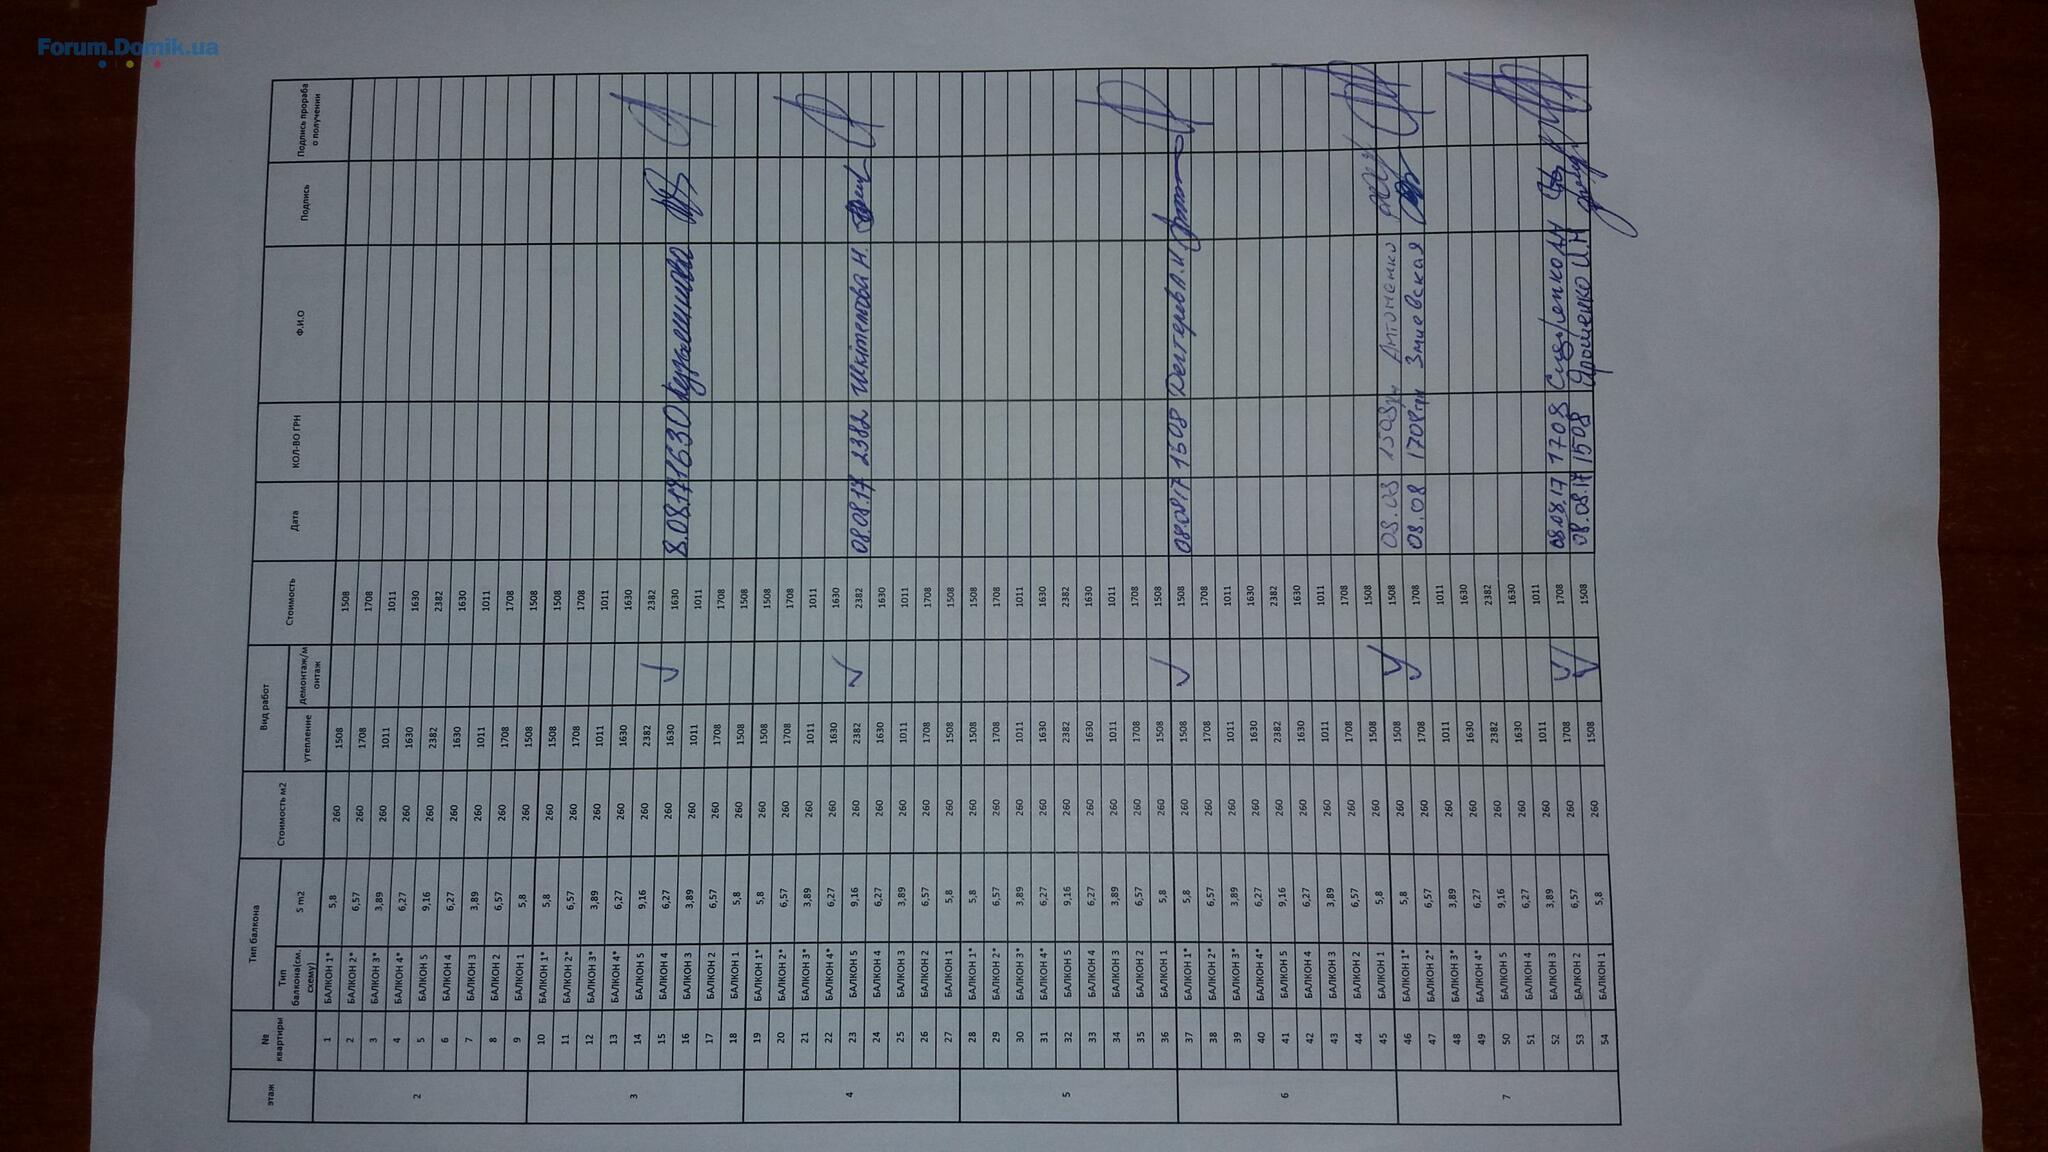 Forum.Domik.ua
этаж № квартиры Тип балкона Стоимость м2 Вид работ Стоимость Дата КОЛ-ВО ГРН Ф.И.О Подпись Подпись прораба о получении
Тип балкона(см. схему) S m2 утепление демонтаж/монтаж
2
1 БАЛКОН 1* 5,8 260 1508 1508
2 БАЛКОН 2* 6,57 260 1708 1708
3 БАЛКОН 3* 3,89 260 1011 1011
4 БАЛКОН 4* 6,27 260 1630 1630
5 БАЛКОН 5 9,16 260 2382 2382
6 БАЛКОН 4 6,27 260 1630 1630
7 БАЛКОН 3 3,89 260 1011 1011
8 БАЛКОН 2 6,57 260 1708 1708
9 БАЛКОН 1 5,8 260 1508 1508
3
10 БАЛКОН 1* 5,8 260 1508 1508
11 БАЛКОН 2* 6,57 260 1708 1708
12 БАЛКОН 3* 3,89 260 1011 1011
13 БАЛКОН 4* 6,27 260 1630 1630
14 БАЛКОН 5 9,16 260 2382 2382
15 БАЛКОН 4 6,27 260 1630 1630 8.08.17 1630
16 БАЛКОН 3 3,89 260 1011 1011
17 БАЛКОН 2 6,57 260 1708 1708
18 БАЛКОН 1 5,8 260 1508 1508
4
19 БАЛКОН 1* 5,8 260 1508 1508
20 БАЛКОН 2* 6,57 260 1708 1708
21 БАЛКОН 3* 3,89 260 1011 1011
22 БАЛКОН 4* 6,27 260 1630 1630
23 БАЛКОН 5 9,16 260 2382 2382 08.08.17 2382
24 БАЛКОН 4 6,27 260 1630 1630
25 БАЛКОН 3 3,89 260 1011 1011
26 БАЛКОН 2 6,57 260 1708 1708
27 БАЛКОН 1 5,8 260 1508 1508
5
28 БАЛКОН 1* 5,8 260 1508 1508
29 БАЛКОН 2* 6,57 260 1708 1708
30 БАЛКОН 3* 3,89 260 1011 1011
31 БАЛКОН 4* 6,27 260 1630 1630
32 БАЛКОН 5 9,16 260 2382 2382
33 БАЛКОН 4 6,27 260 1630 1630
34 БАЛКОН 3 3,89 260 1011 1011
35 БАЛКОН 2 6,57 260 1708 1708
36 БАЛКОН 1 5,8 260 1508 1508
6
37 БАЛКОН 1* 5,8 260 1508 1508 08.08.17 1508
38 БАЛКОН 2* 6,57 260 1708 1708
39 БАЛКОН 3* 3,89 260 1011 1011
40 БАЛКОН 4* 6,27 260 1630 1630
41 БАЛКОН 5 9,16 260 2382 2382
42 БАЛКОН 4 6,27 260 1630 1630
43 БАЛКОН 3 3,89 260 1011 1011
44 БАЛКОН 2 6,57 260 1708 1708
45 БАЛКОН 1 5,8 260 1508 1508
7
46 БАЛКОН 1* 5,8 260 1508 1508 08.08 1508 Антоненко
47 БАЛКОН 2* 6,57 260 1708 1708 08.08 1708 грн Змиевская
48 БАЛКОН 3* 3,89 260 1011 1011
49 БАЛКОН 4* 6,27 260 1630 1630
50 БАЛКОН 5 9,16 260 2382 2382
51 БАЛКОН 4 6,27 260 1630 1630
52 БАЛКОН 3 3,89 260 1011 1011
53 БАЛКОН 2 6,57 260 1708 1708 08.08.17 1708
54 БАЛКОН 1 5,8 260 1508 1508 08.08.17 1508 Ярошенко И.Н